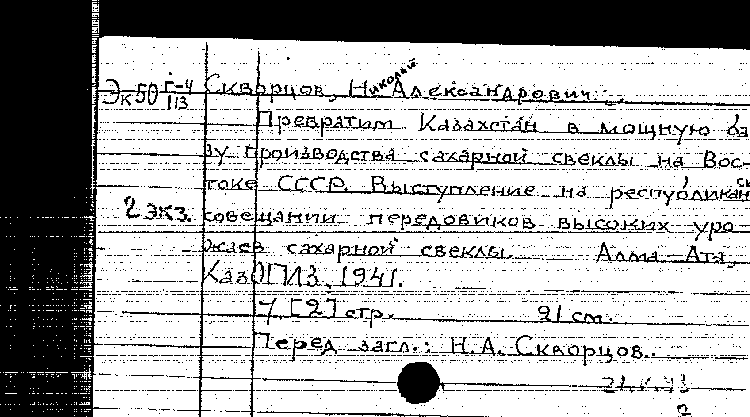 Эк50 Г-4
113
Скворцов, Николай Александрович.
Превратим Казахстан в мощную ба
зу производства сахарной свеклы на Вос-
токе СССР. Выступление на республикан ск
2 экз. совещании передовиков высоких уро
жаев сахарной свеклы. Алма-Ата,
КазОГИЗ, 1941.
7, [2] стр. 21 см.
Перед загл.: Н.А. Скворцов.